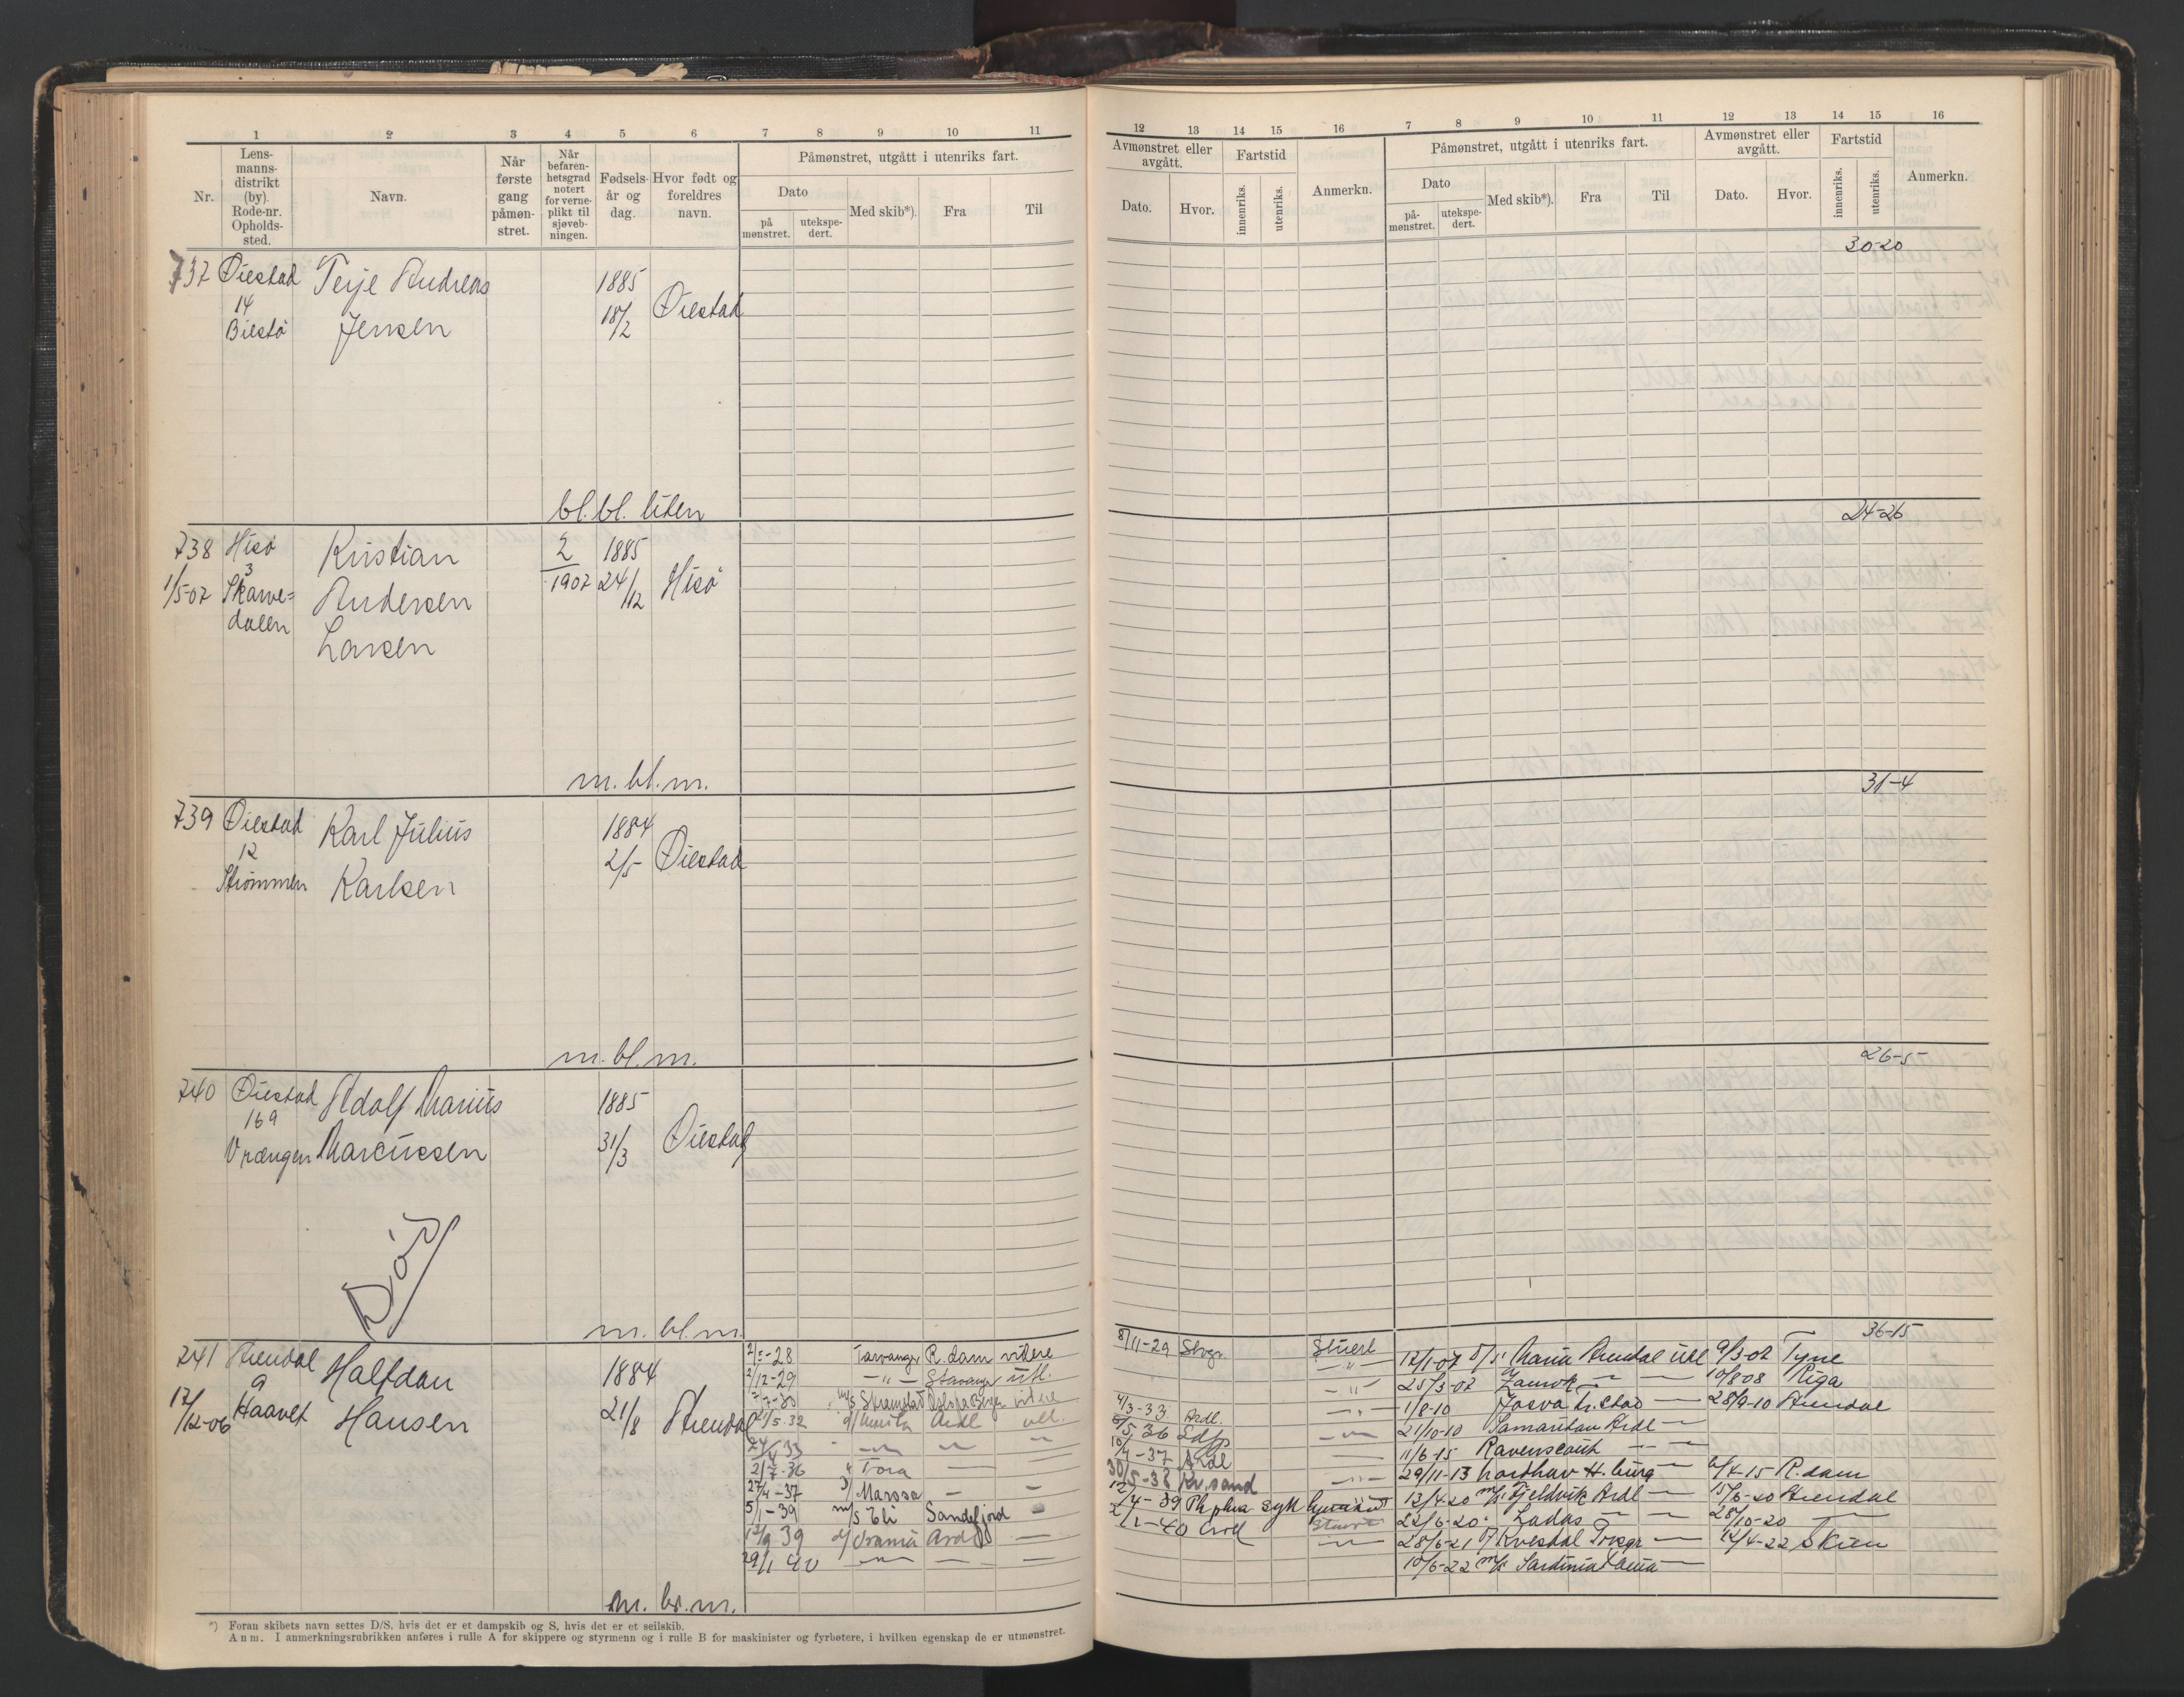 1 2 3 4 5 6 7 8 9 10 11
Nr.
Lens-
manns-
distrikt
(by).
Rode-nr.
Opholds-
sted.
Navn.
Når
første
gang
påmøn-
stret.
Når
befaren-
hetsgrad
notert
for verne-
plikt til
sjøveb-
ningen.
Fødsels-
år og
dag.
Hvor født og
foreldres
navn.
Påmønstret, utgått i utenriks fart.
Dato
på
mønstret.
utekspe-
dert.
Med skib*).
Fra
Til
737 Øiestad Terje Andreas 1885
14 18/2 Øiestad
Biestø Jensen
bl. bl. liten
738 Hisø Kristian 2 1885
3
1/5-07 Skarve= Andersen 1907 24/12 Hisø
dalen
Larsen
m. bl. m.
739 Øiestad Karl Julius 1884
12 2/5 Øiestad
Strømmen Karlsen
m. bl. m.
740 Øiestad Adolf Marius 1885
169
Vrængen Marcussen 31/3 Øiestad
Død
m. bl. m.
741 Arendal Halfdan 1884
9
17/12-06 Haavet Hansen 21/8 Arendal
-28 Tarvanger R.dam videre
/12-29 —"— Stavanger utl.
/5.32 Ardl utl.
24/ 33
2/7-36 " Tora —
27/4-37 Marosa — —
5/1-39 m/s Eli Sandefjord
/9 39 d/ Urania Ard —
29/1 40 — — —
m. br. m.
*) Foran skibets navn settes D/S, hvis det er et dampskib og S, hvis det er et seilskib.
Anm. I anmerkningsrubrikken anføres i rulle A for skippere og styrmenn og i rulle B for maskinister og fyrbøtere, i hvilken egenskap de er utmønstret.
12 13 14 15 16 7 8 9 10 11 12 13 14 15 16
Avmønstret eller
avgått.
Dato.
Hvor.
Fartstid
innenriks.
utenriks.
Anmerkn.
Påmønstret, utgått i utenriks fart.
Dato
på-
mønstret.
utekspe-
dert.
Med skib*).
Fra
Til
Avmønstret eller
avgått.
Dato.
Hvor.
Fartstid
innenriks.
utenriks.
Anmerkn.
30-20
24-26
31-4
26-5
36-15
8/11-29 Stvgr. Stuert 12/1-07 D/S Maria Arendal utl 9/3-07 Tyne
—"— 25/3-07 — — 10/8-08 Riga
—"— 1/8-10 Josva — 28/9-10 Arendal
4/3-33 Ardl. 21/10-10 Samaritan Ardl —
/5 36 11/6-15 Ravenscourt — —
/7-37 Ardl 29/11-13 Nordhav H.burg — 6/4-15 R.dam
30/5-38 Kr.sand —"— 12/4-20 m/s Fjeldvik Ardl — 15/6-20 Arendal
/4-39 22/6-20 Ladas — — 28/10-20 —
-40 Stuert 28/6-21 — /4-22 Skien
10/6-22 m/s Sardinia —